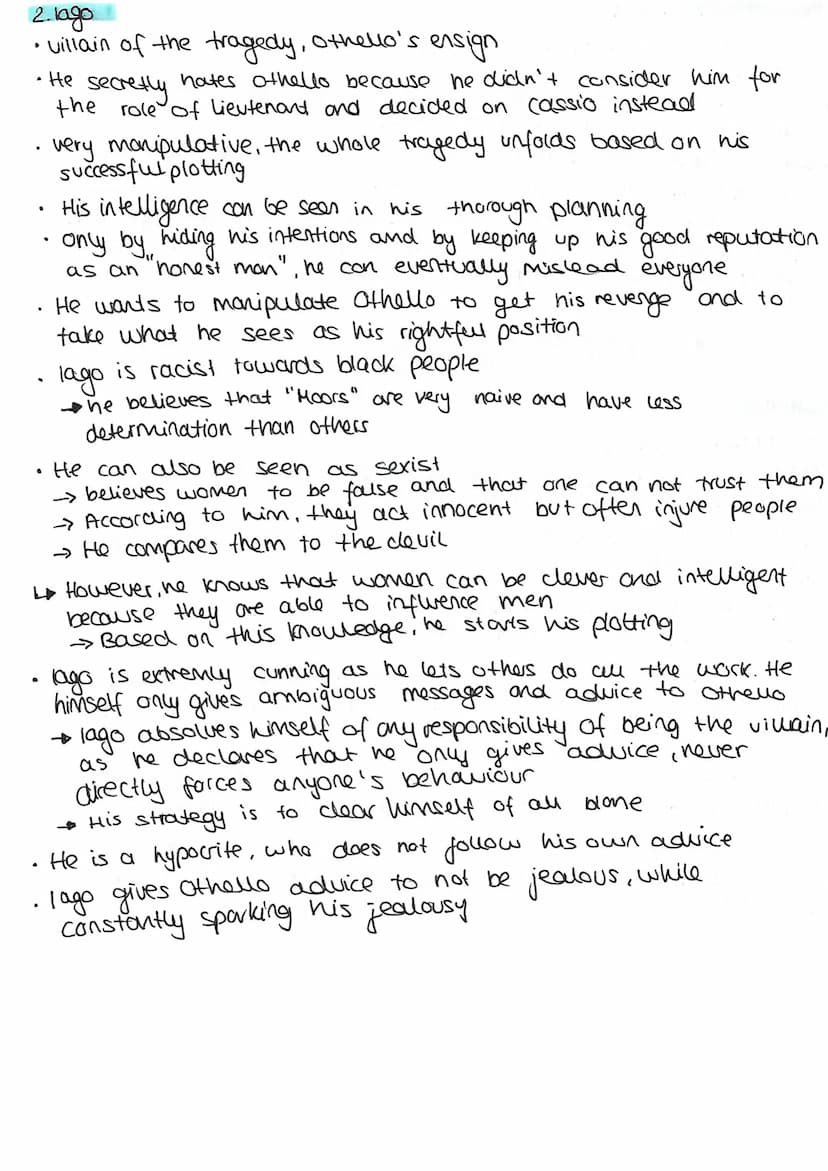 2. Iago
• villain of the tragedy, Othello's ensign
• He secretly hates Othello because he didn't consider him for
the role of lieutenant and decided on Cassio instead
• very manipulative, the whole tragedy unfolds based on his
successful plotting
• His intelligence can be seen in his thorough planning
• only by hiding his intentions and by keeping up his good reputation
as an "honest man", he can eventually mislead everyone
• He wants to manipulate Othello to get his revenge and to
take what he sees as his rightful position
• Iago is racist towards black people
→ he believes that "Moors" are very naive and have less
determination than others
• He can also be seen as sexist
→ believes women to be false and that one can not trust them
→ According to him, they act innocent but often injure people
→ He compares them to the devil
↳ However, he knows that women can be clever and intelligent
because they are able to influence men
→ Based on this knowledge, he starts his plotting
• Iago is extremly cunning as he lets others do all the work. He
himself only gives ambiguous messages and advice to Othello
→ Iago absolves himself of any responsibility of being the villain,
as he declares that he only gives advice, never
directly forces anyone's behaviour
→ His strategy is to clear himself of all blame
• He is a hypocrite, who does not follow his own advice
• Iago gives Othello advice to not be jealous, while
constantly sparking his jealousy